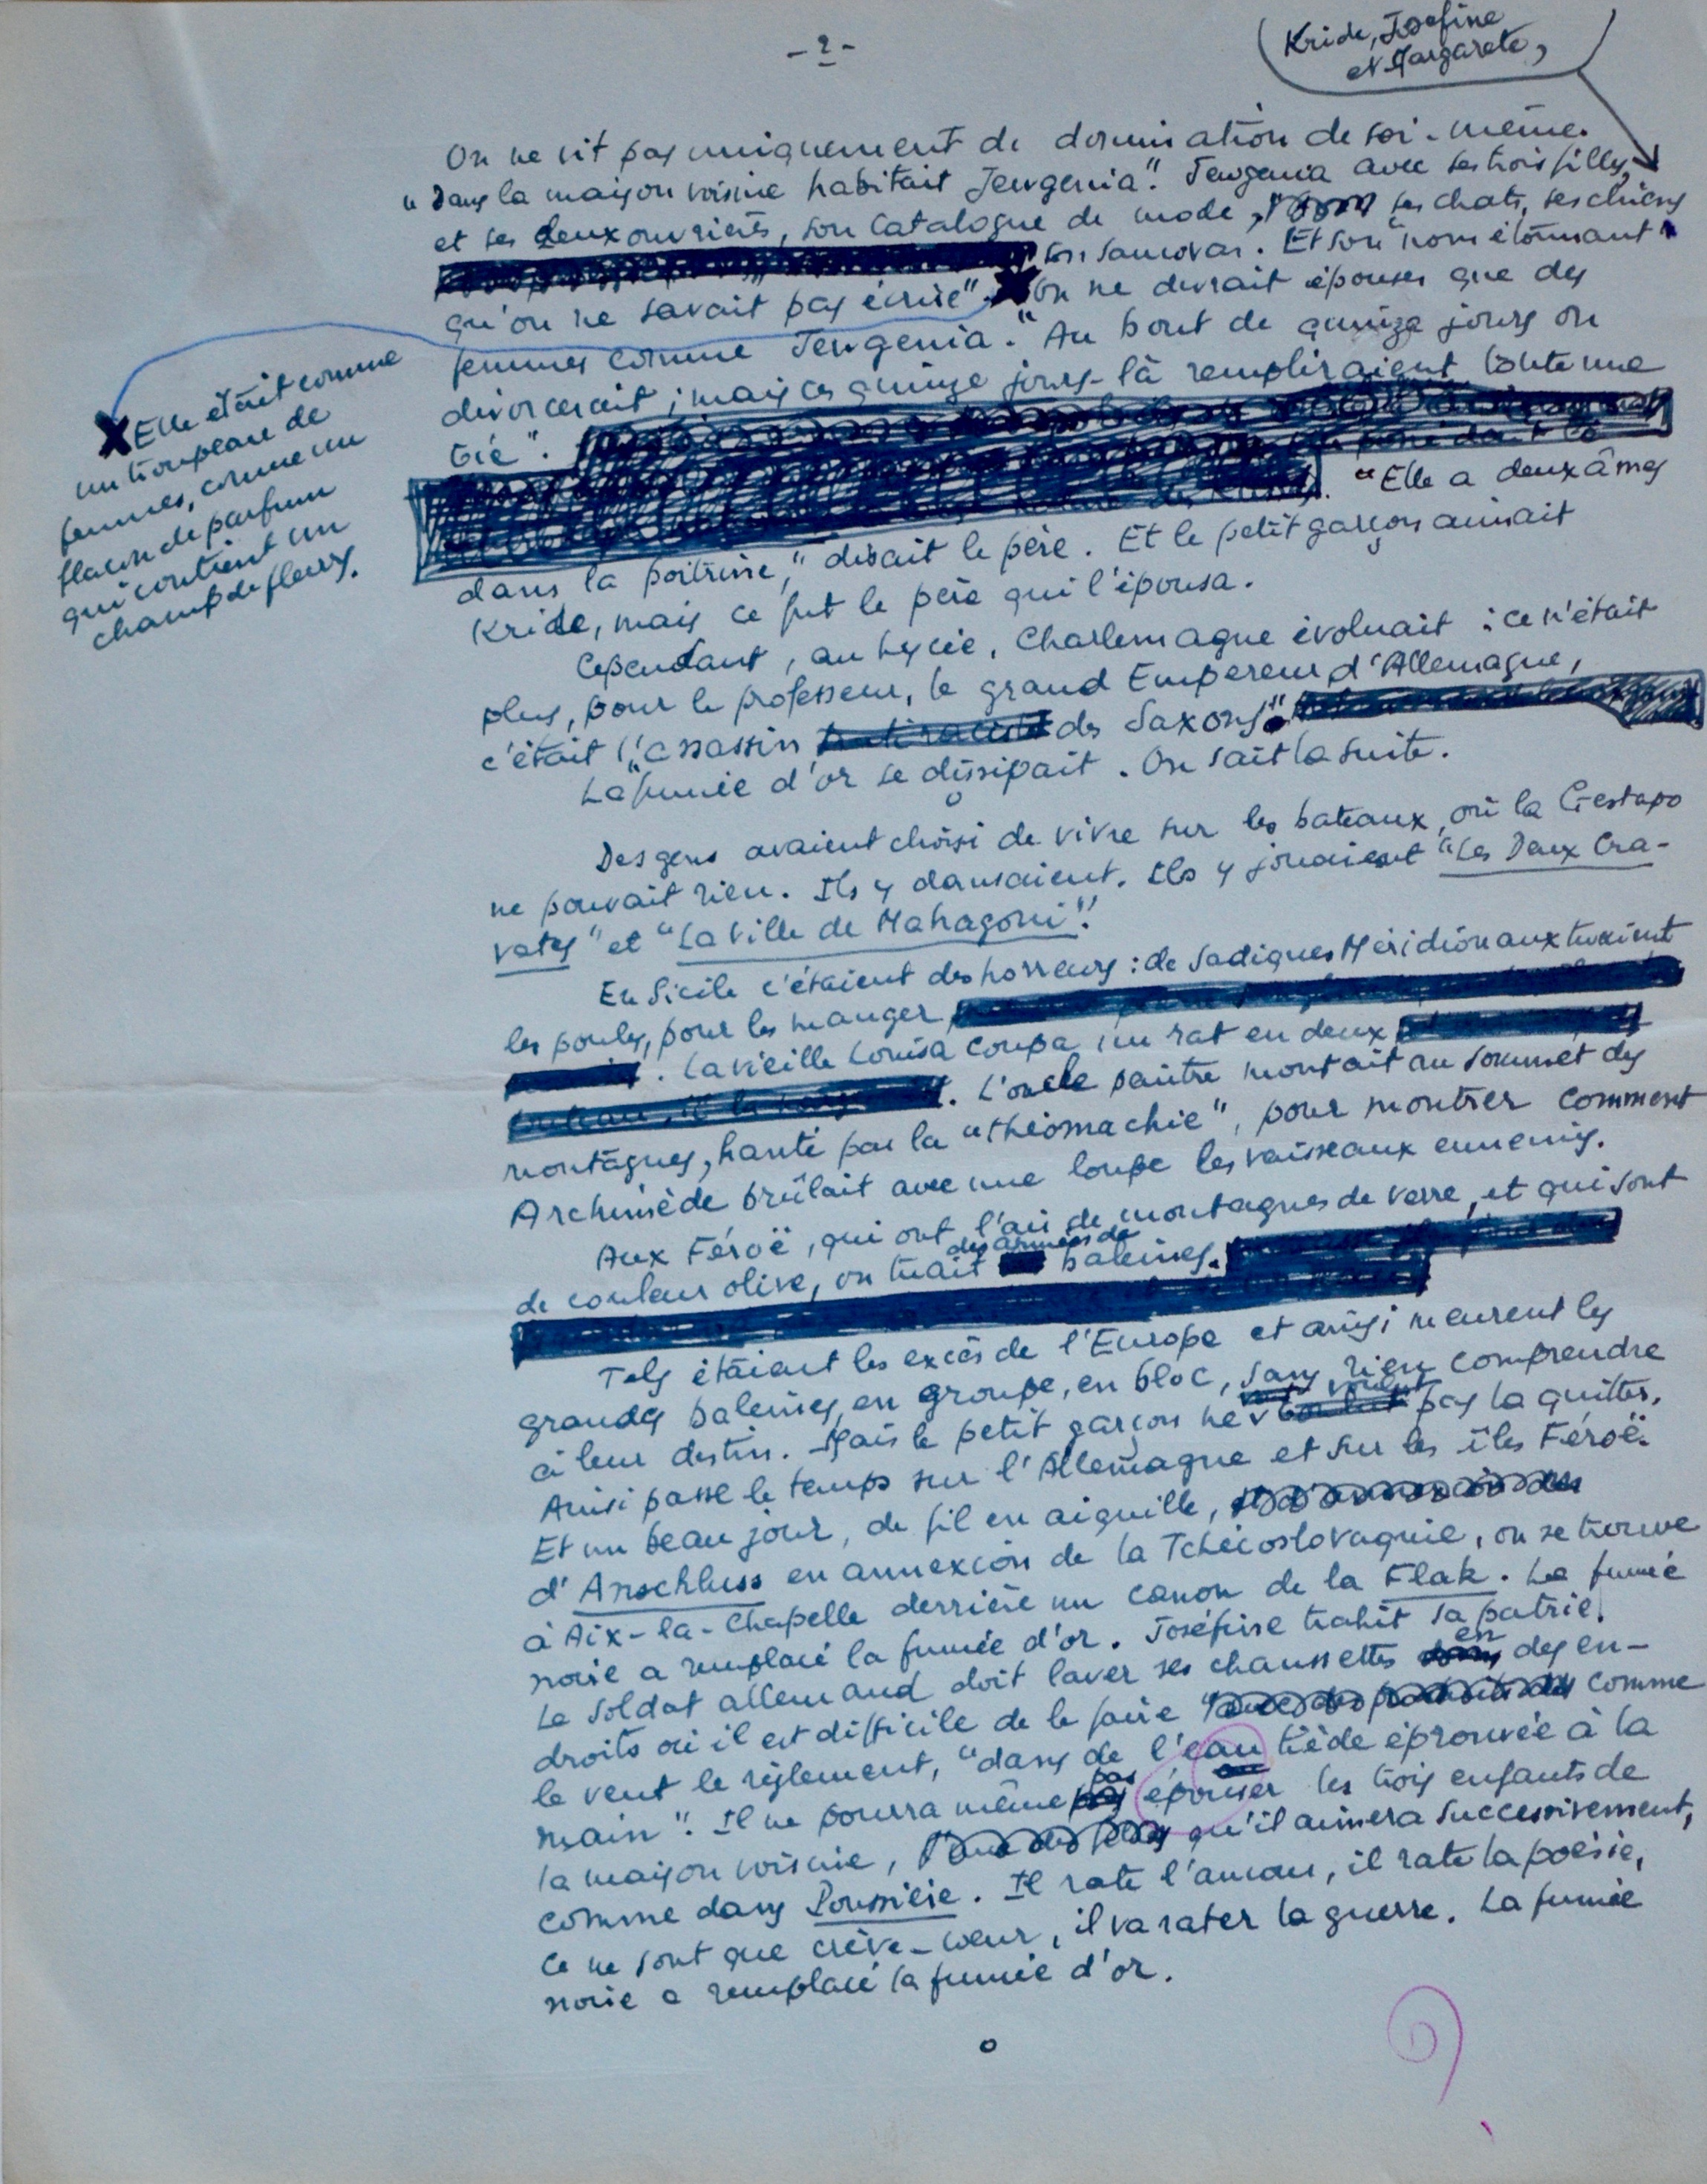 - 2 -
Kride, Josefine
et Margarete,
On ne vit pas uniquement de domination de soi-même.
"Dans la maison voisine habitait Jewgenia". Jewgenia avec ses trois filles,
et ses deux ouvrières, son catalogue de mode, ses chats, ses chiens
son samovar. Et son "nom étonnant
qu'on ne savait pas écrire". On ne devrait épouser que des
femmes comme Jewgenia. "Au bout de quinze jours on
divorcerait ; mais ces quinze jours-là rempliraient toute une
vie". 
"Elle a deux âmes
dans la poitrine", disait le père. Et le petit garçon aimait
Kride, mais ce fut le père qui l'épousa.
X Elle était comme
un troupeau de
femmes, comme un
flacon de parfum
qui contient un
champ de fleurs.
Cependant, au Lycée, Charlemagne évoluait : ce n'était
plus, pour le professeur, le grand Empereur d'Allemagne,
c'était l'"assassin des Saxons".
La fumée d'or se dissipait. On sait la suite.
Des gens avaient choisi de vivre sur les bateaux, où la Gestapo
ne pouvait rien. Ils y dansaient. Ils y jouaient "Les Deux Cra-
vates" et "La Ville de Mahagoni".
En Sicile c'étaient des horreurs : de sadiques Méridionaux tuaient
les poules, pour les manger
. La vieille Louisa coupa un rat en deux
. L'oncle peintre montait au sommet des
montagnes, hanté par la "théomachie", pour montrer comment
Archimède brûlait avec une loupe les vaisseaux ennemis.
Aux Féroë, qui ont l'air de montagnes de verre, et qui sont
de couleur olive, on tuait des armées de baleines.
Tels étaient les excès de l'Europe et ainsi meurent les
grandes baleines, en groupe, en bloc, sans rien comprendre
à leur destin. Mais le petit garçon ne veut pas la quitter.
Ainsi passe le temps sur l'Allemagne et sur les îles Féroë.
Et un beau jour, de fil en aiguille,
d'Anschluss en annexion de la Tchécoslovaquie, on se trouve
à Aix-la-Chapelle derrière un canon de la Flak. La fumée
noire a remplacé la fumée d'or. Joséfine trahit sa patrie.
Le soldat allemand doit laver ses chaussettes en des en-
droits où il est difficile de le faire comme
le veut le règlement, "dans de l'eau tiède éprouvée à la
main". Il ne pourra même pas épouser les trois enfants de
la maison voisine, qu'il aimera successivement,
comme dans Poussière. Il rate l'amour, il rate la poésie,
ce ne sont que crève-coeur, il va rater la guerre. La fumée
noire a remplacé la fumée d'or.